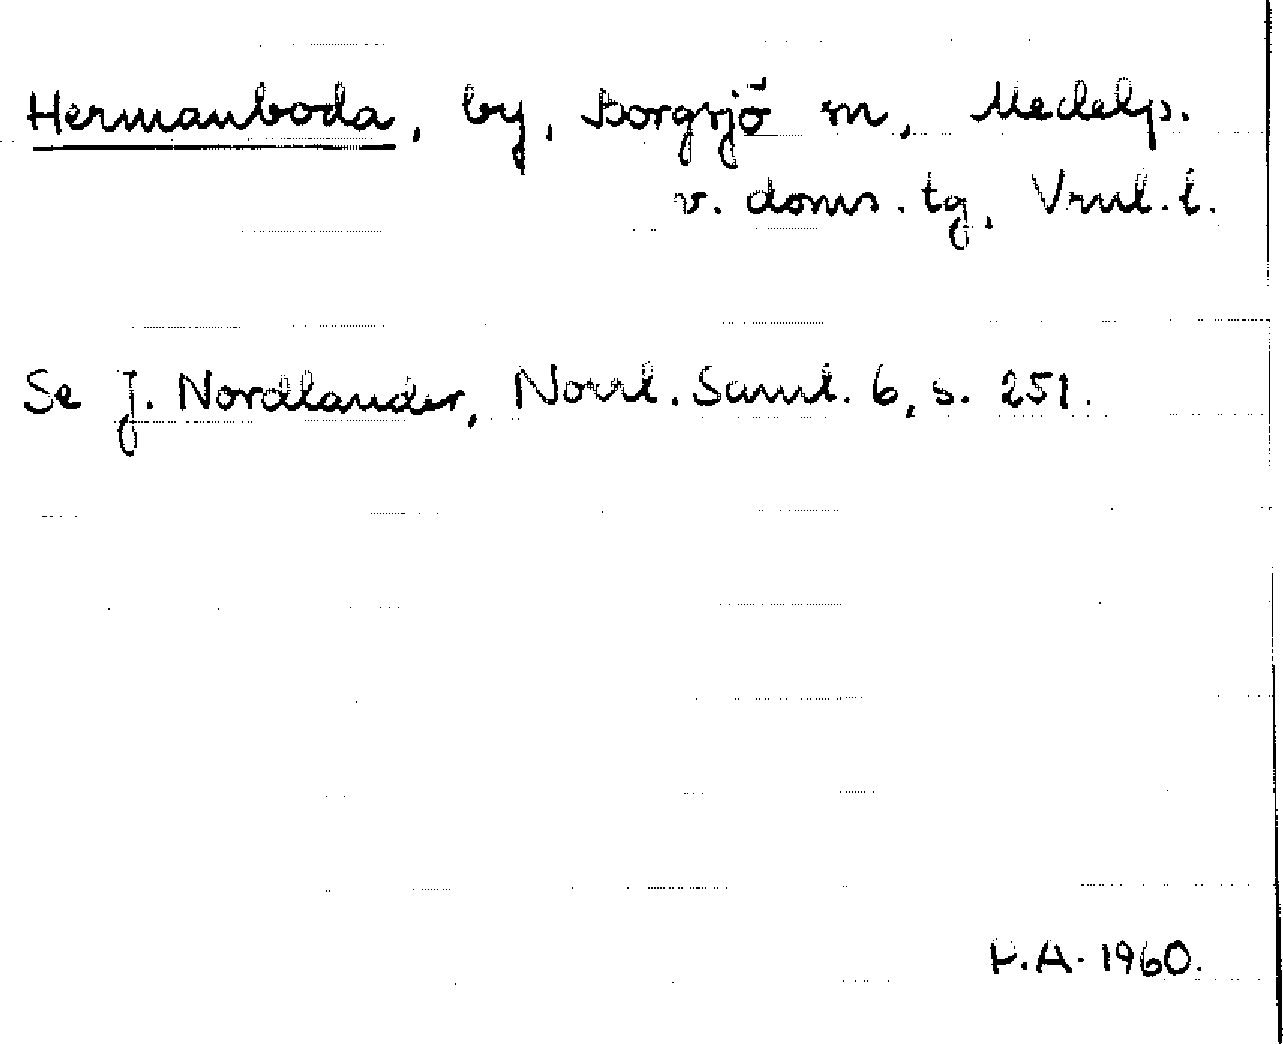 Hermanboda, by, Borgsjö sn, Medelp.
v. doms. tg, Vrnl. l.
Se J. Nordlander, Norrl. Saml. 6, s. 251.
P.A. 1960.